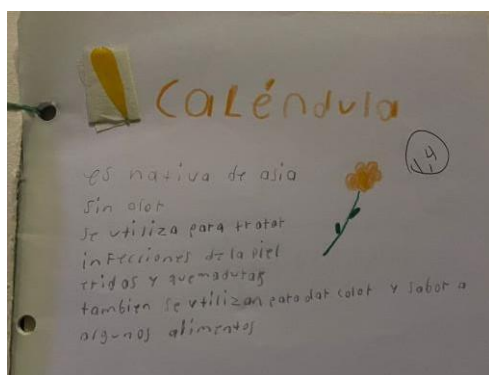 Caléndula
14
es nativa de asia
sin olor
se utiliza para tratar
infecciones de la piel
eridas y quemaduras
tambien se utilizan para dar color y sabor a
algunos alimentos